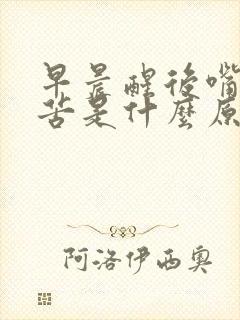 早晨醒後嘴
苦是什麼原
阿洛伊西奥